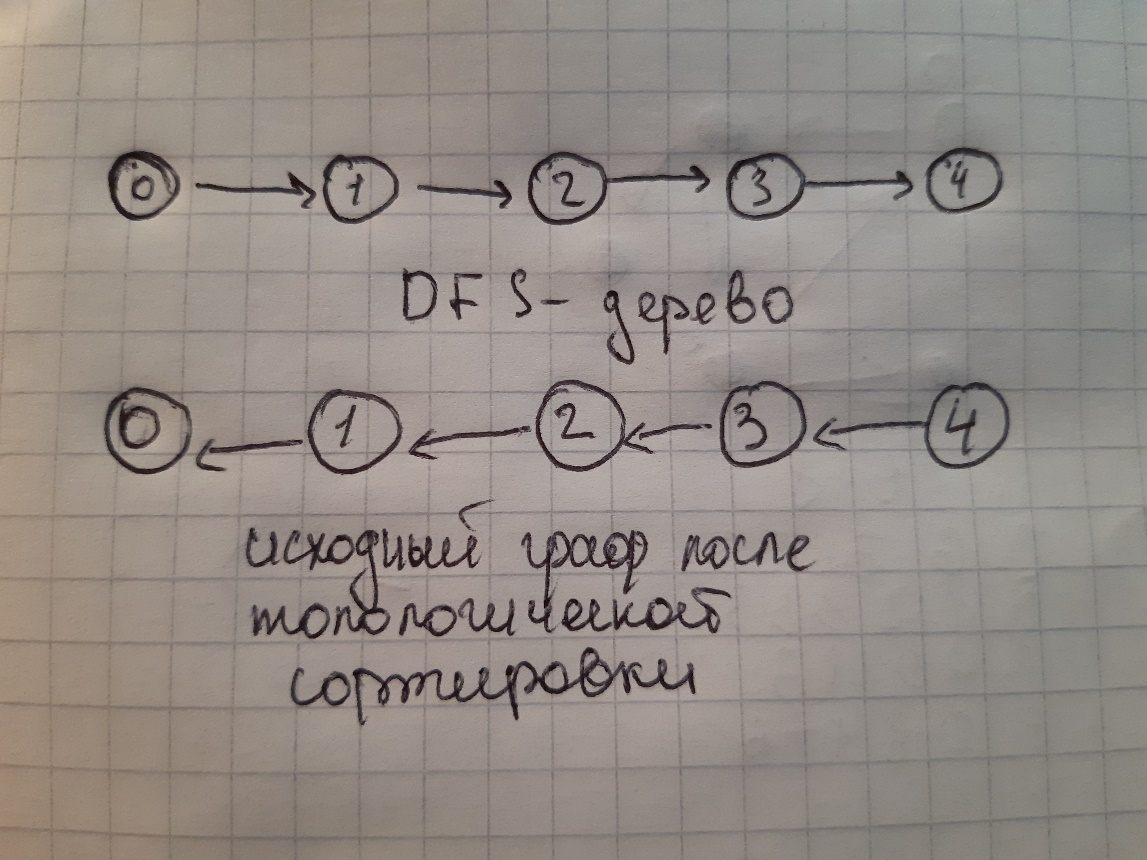 0 1 2 3 4
DFS-дерево
0 1 2 3 4
исходный граф после
топологической
сортировки